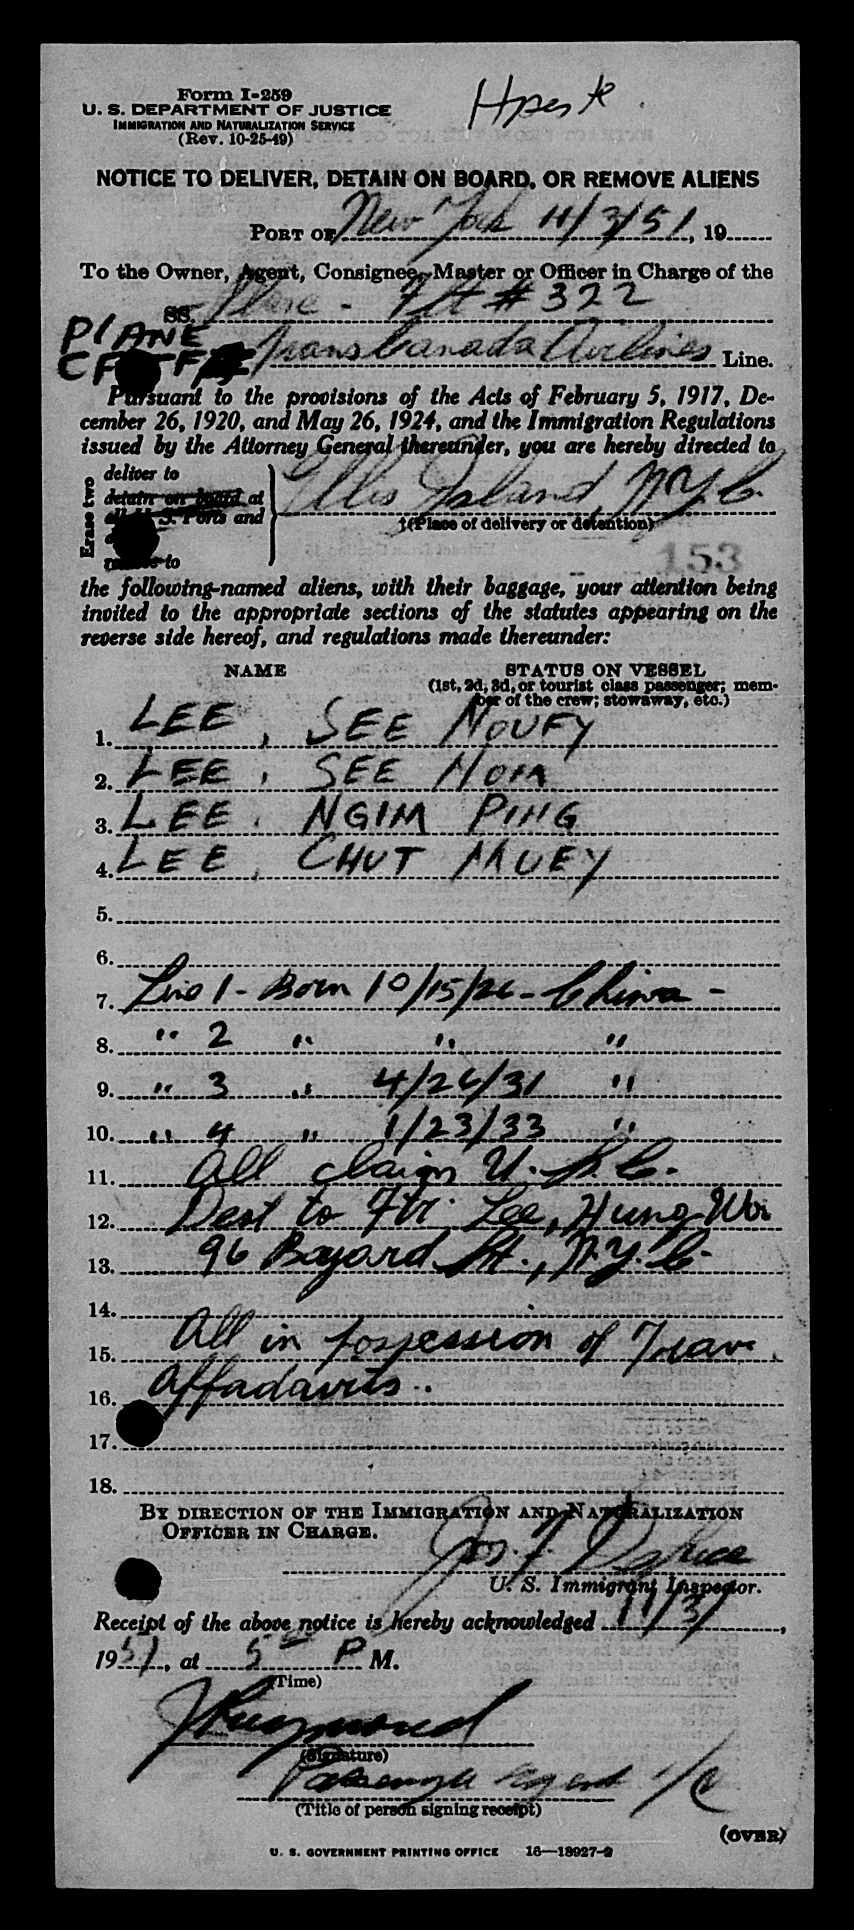 Form I-259
U. S. DEPARTMENT OF JUSTICE
IMMIGRATION AND NATURALIZATION SERVICE
(Rev. 10-25-49)
NOTICE TO DELIVER, DETAIN ON BOARD, OR REMOVE ALIENS
PORT OF New York 11/3/51, 19
To the Owner, Agent, Consignee, Master or Officer in Charge of the
SS. Plane - Flt # 322
PLANE
Trans Canada Airlines Line.
Pursuant to the provisions of the Acts of February 5, 1917, De-
cember 26, 1920, and May 26, 1924, and the Immigration Regulations
issued by the Attorney General thereunder, you are hereby directed to
Erase two
deliver to
detain on board at
all U. S. Ports and
to
Ellis Island, N.Y.C.
†(Place of delivery or detention)
153
the following-named aliens, with their baggage, your attention being
invited to the appropriate sections of the statutes appearing on the
reverse side hereof, and regulations made thereunder:
NAME STATUS ON VESSEL
(1st, 2d, 3d, or tourist class passenger; mem-
ber of the crew; stowaway, etc.)
1. LEE, SEE MOUFY
2. LEE, SEE HOM
3. LEE, NGIM PING
4. LEE, CHUT MUEY
5.
6.
7. Line 1 - Born 10/15/26 - China -
8. " 2 " " "
9. " 3 " 4/26/31 "
10. " 4 " 1/23/33 "
11. All claim U.S.C.
12. Dest to Ftr. Lee, Hung Woi
13. 96 Bayard St., N.Y.C.
14.
15. All in possession of Trav.
16. Affadavits..
17.
18.
BY DIRECTION OF THE IMMIGRATION AND NATURALIZATION
OFFICER IN CHARGE.
Jos. F.
U. S. Immigrant Inspector.
Receipt of the above notice is hereby acknowledged 11/3/,
1951, at 5 00 P M.
(Time)
J Raymond
(Signature)
Passenger Agent
(Title of person signing receipt)
(OVER)
U. S. GOVERNMENT PRINTING OFFICE 16—18927-2